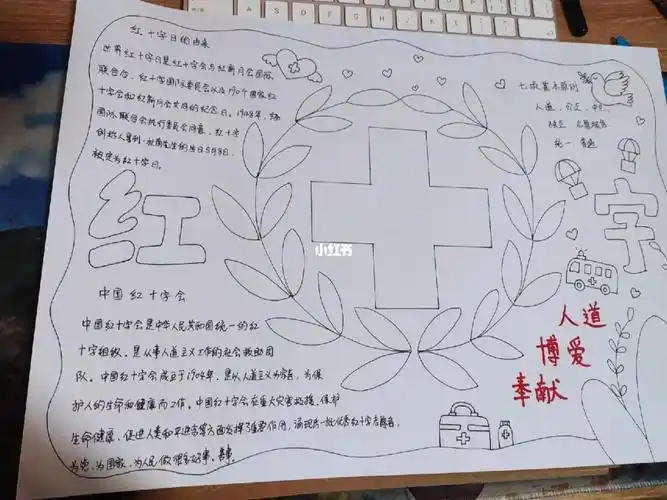 红十字日的由来
世界红十字日是红十字会与红新月会国际
联合会、红十字国际委员会以及190个国家红
十字会和红新月会共同的纪念日。1948年,经
国际联合会执行委员会同意,红十字
创始人亨利·杜南先生的生日5月8日,
被定为红十字日。
七项基本原则
人道 公正 中立
独立 志愿服务
统一 普遍
红
字
小红书
中国红十字会
中国红十字会是中华人民共和国统一的红
十字组织,是从事人道主义工作的社会救助团
队。中国红十字会成立于1904年,是以人道主义为宗旨,为保
护人的生命和健康而工作。中国红十字会在重大灾害救援、保护
生命健康、促进人类和平进步等方面发挥了重要作用,涌现出一批优秀红十字志愿者,
为党、为国家、为人民做很多好事、善事。
人道
博爱
奉献